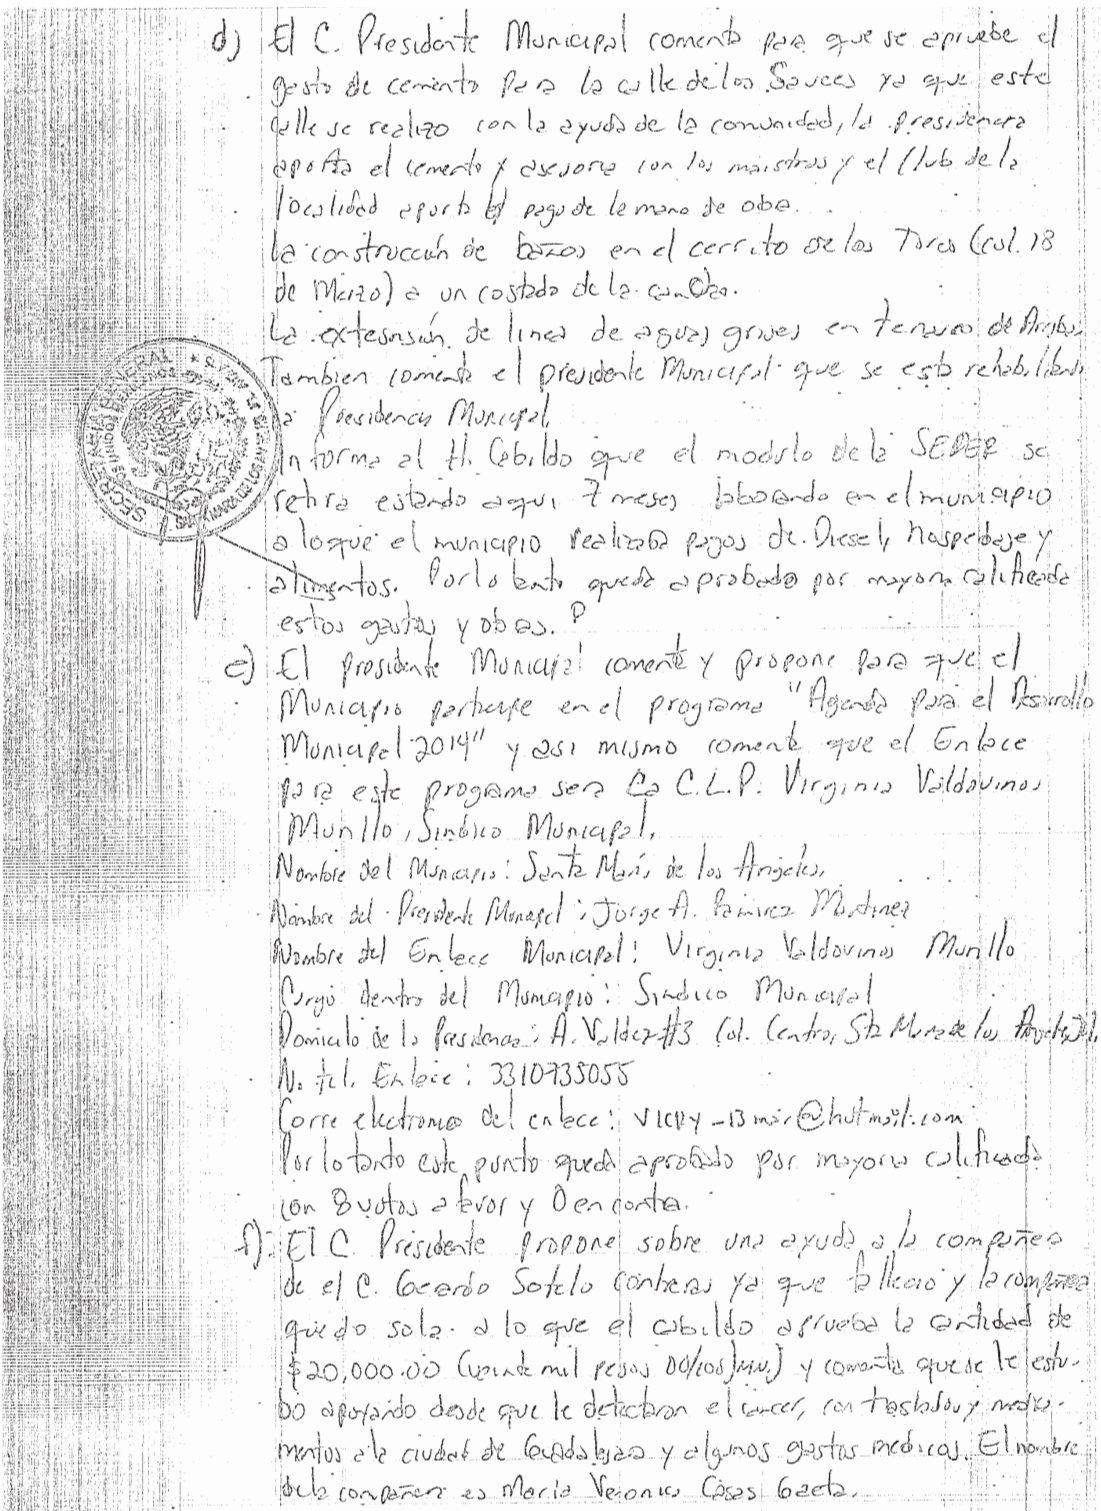 d) El C. Presidente Municipal comenta para que se apruebe el
gasto de cemento para la calle de los Sauces ya que esta
calle se realizo con la ayuda de la comunidad, la presidencia
aporta el cemento y asesoria con los maistros y el Club de la
localidad aporta el pago de la mano de obra.
La construcción de bazos en el cerrito de los Toros (col. 18
de Marzo) a un costado de la cancha.
La extesnsión de linea de aguas grises en tenazco de Arriba.
Tambien comenta el presidente Municipal que se esta rehabilitando
la Presidencia Municipal.
Informa al H. Cabildo que el modulo de la SEDER se
retira estando aqui 7 meses laborando en el municipio
a lo que el municipio realizaba pagos de Diesel, hospedaje y
alimentos. Por lo tanto queda aprobado por mayoria calificada
estos gastos y obras.
e) El presidente Municipal comenta y propone para que el
Municipio participe en el programa "Agenda para el Desarrollo
Municipal 2014" y asi mismo comenta que el Enlace
para este programa sera La C.L.P. Virginia Valdovinos
Murillo, Sindico Municipal.
Nombre del Municipio: Santa María de los Angeles.
Nombre del Presidente Municipal: Jorge A. Ramirez Martinez
Nombre del Enlace Municipal: Virginia Valdovinos Murillo
Cargo dentro del Municipio: Sindico Municipal
Domicilo de la Presidencia: A. Valdez #3 Col. Centro, Sta Maria de los Angeles, Jal.
N. tel. Enlace: 3310735055
Corre electronico del enlace: vicky_13mar@hotmail.com
Por lo tanto este punto queda aprobado por mayoria calificada
con 8 votos a favor y 0 en contra.
f) El C. Presidente propone sobre una ayuda a la compañera
de el C. Gerardo Sotelo Contreras ya que fallecio y la compañera
quedo sola. a lo que el cabildo aprueba la cantidad de
$20,000.00 (veinte mil pesos 00/100 M.N.) y comenta que se le estu-
bo apoyando desde que le detectaron el cancer, con traslados y medica-
mentos a la ciudad de Guadalajara y algunos gastos medicos. El nombre
de la compañera es Maria Veronica Casas Gaeta.
SECRETARIA GENERAL
ESTADOS UNIDOS MEXICANOS